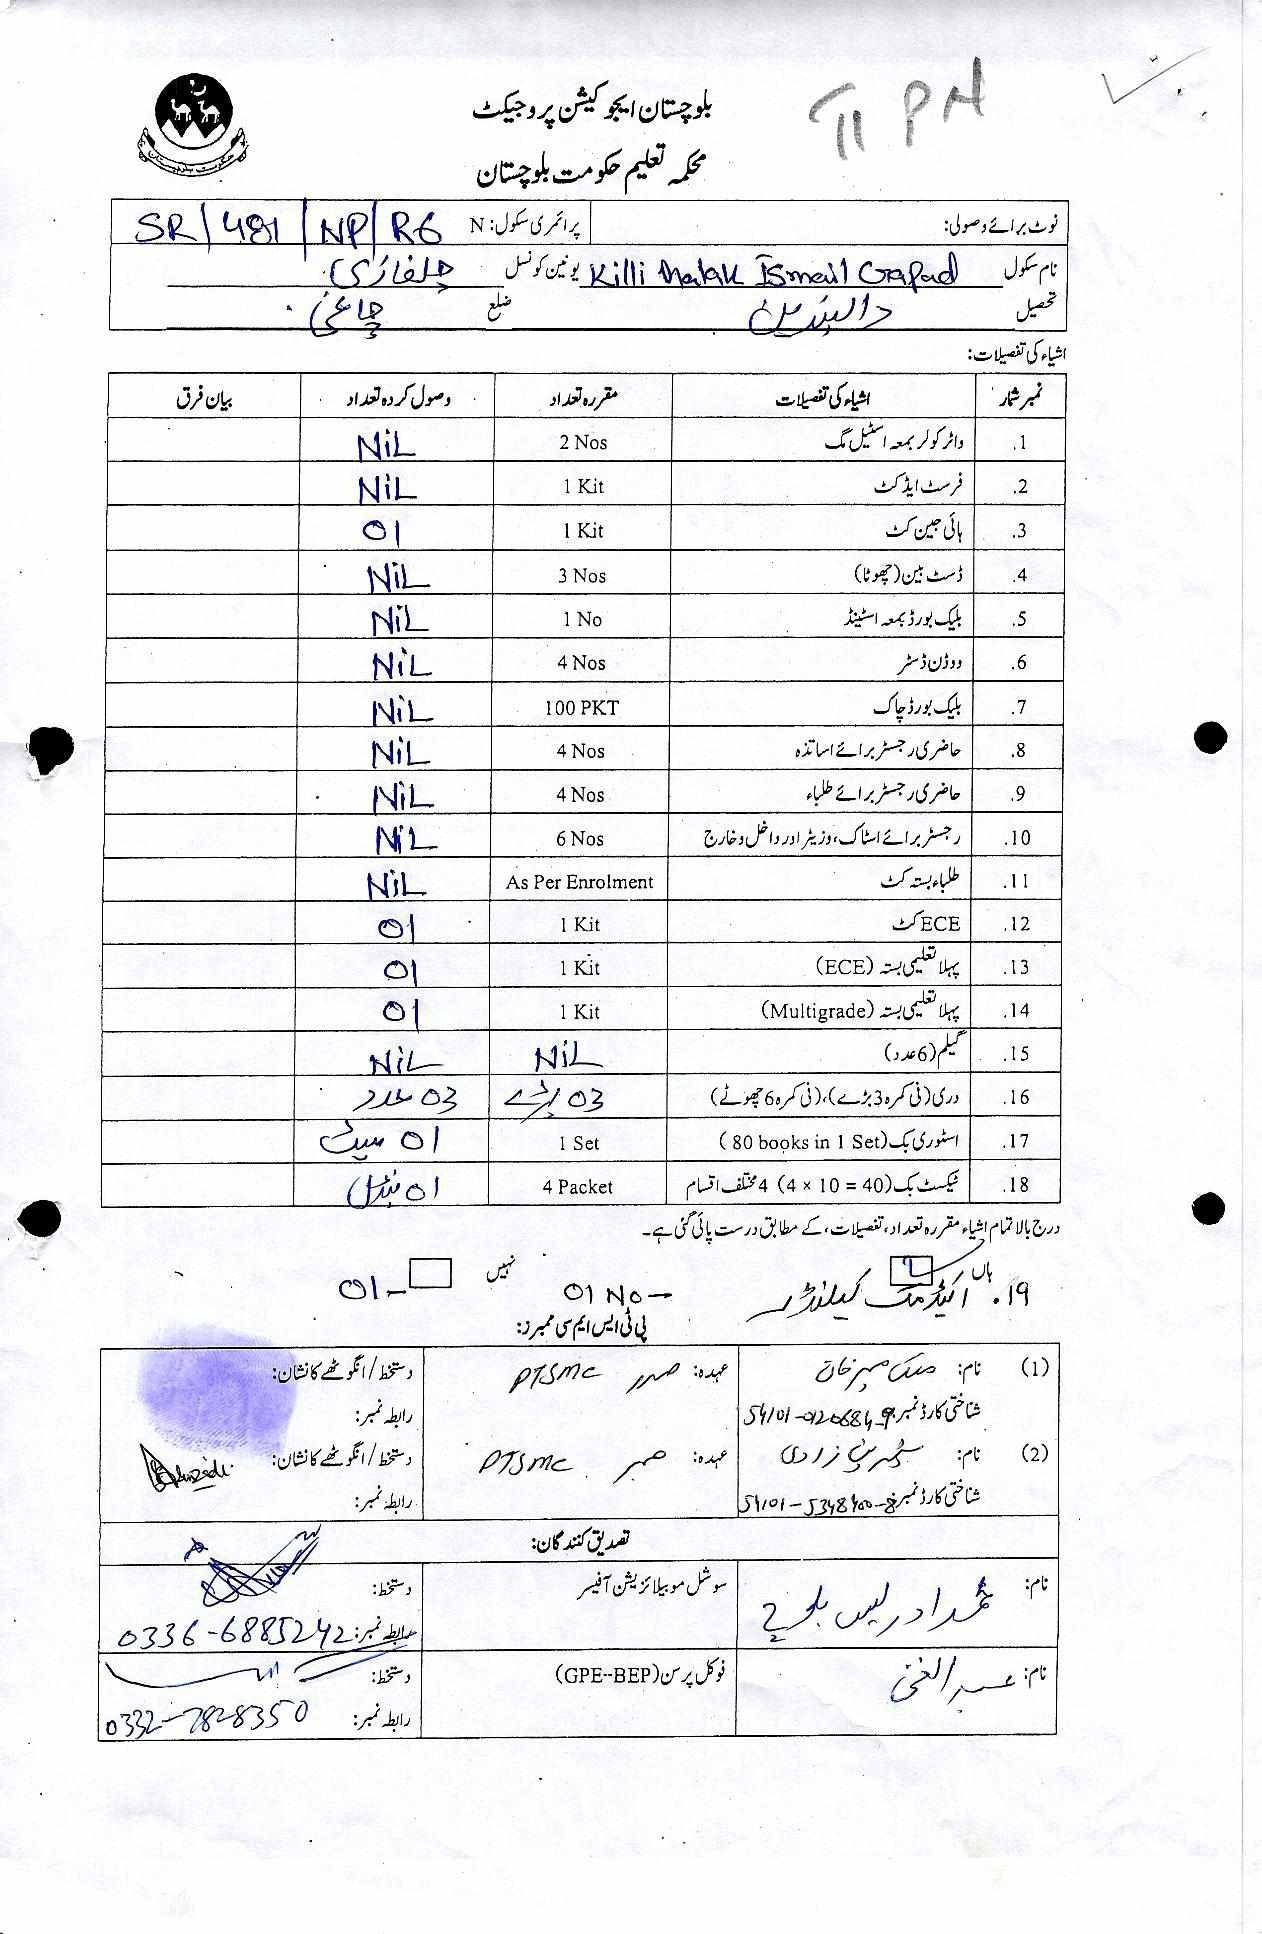 بلوچستان ایجوکیشن پروجیکٹ
محکمہ تعلیم حکومت بلوچستان
نوٹ برائے وصولی: پرائمری سکول: N SR/481/NP/R6
نام سکول Killi Malak Ismail یونین کونسل
تحصیل دالبندین ضلع چاغی
اشیاء کی تفصیلات:
نمبر شمار اشیاء کی تفصیلات مقررہ تعداد وصول کردہ تعداد بیان فرق
1. واٹر کولر بمعہ اسٹیل مگ 2 Nos NiL
2. فرسٹ ایڈ کٹ 1 Kit NiL
3. ہائی جین کٹ 1 Kit 01
4. ڈسٹ بین (چھوٹا) 3 Nos NiL
5. بلیک بورڈ بمعہ اسٹینڈ 1 No NiL
6. ووڈن ڈسٹر 4 Nos NiL
7. بلیک بورڈ چاک 100 PKT NiL
8. حاضری رجسٹر برائے اساتذہ 4 Nos NiL
9. حاضری رجسٹر برائے طلباء 4 Nos NiL
10. رجسٹر برائے اسٹاک، وزیٹر اور داخل و خارج 6 Nos NiL
11. طلباء بستہ کٹ As Per Enrolment NiL
12. ECE کٹ 1 Kit 01
13. پہلا تعلیمی بستہ (ECE) 1 Kit 01
14. پہلا تعلیمی بستہ (Multigrade) 1 Kit 01
15. گیلم (6 عدد) NiL NiL
16. دری (فی کمرہ 3 بڑے)، (فی کمرہ 6 چھوٹے) 03 بڑے 03 عدد
17. اسٹوری بک (80 books in 1 Set) 1 Set 01 سیٹ
18. ٹیکسٹ بک (4 × 10 = 40) 4 مختلف اقسام 4 Packet 01 بنڈل
درج بالا تمام اشیاء مقررہ تعداد، تفصیلات، کے مطابق درست پائی گئی ہے۔
ہاں نہیں
۱۹. اکیڈمک کیلنڈر 01 No 01
پی ٹی ایس ایم سی ممبرز:
(1) نام: عہدہ: صدر PTSMC دستخط/انگوٹھے کا نشان:
شناختی کارڈ نمبر: رابطہ نمبر:
(2) نام: عہدہ: ممبر PTSMC دستخط/انگوٹھے کا نشان:
شناختی کارڈ نمبر: رابطہ نمبر:
تصدیق کنندگان:
نام: محمد ادریس بلوچ سوشل موبیلائزیشن آفیسر دستخط:
رابطہ نمبر: 0336-6885242
نام: عبدالغنی فوکل پرسن (GPE--BEP) دستخط:
رابطہ نمبر: 0332-7828350